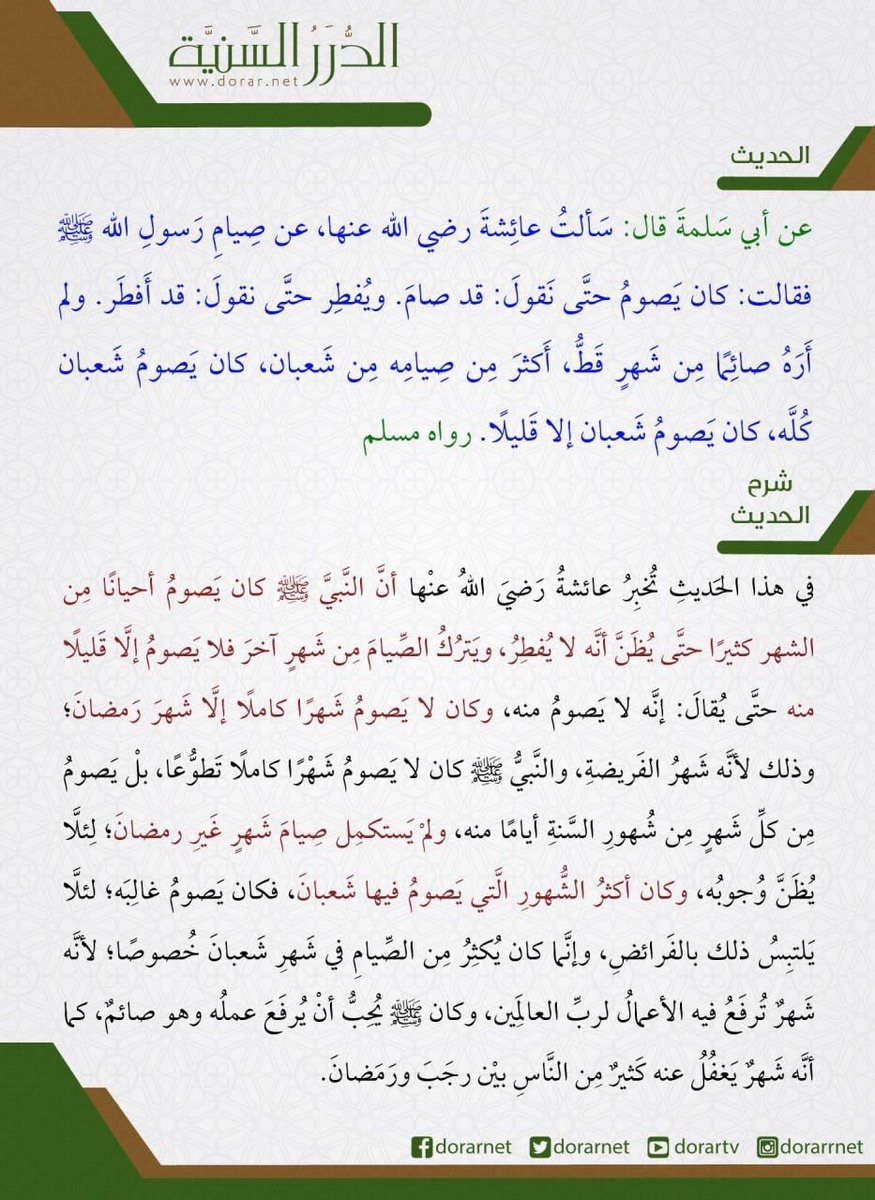 الدُّرَرُ السَّنيَّة
www.dorar.net
الحديث
عن أبي سَلمةَ قال: سَألتُ عائِشةَ رضي الله عنها، عن صِيامِ رَسولِ الله ﷺ
فقالت: كان يَصومُ حتَّى نَقولَ: قد صامَ. ويُفطِر حتَّى نقولَ: قد أَفطَر. ولم
أَرَهُ صائِمًا مِن شَهرٍ قَطُّ، أَكثرَ مِن صِيامِه مِن شَعبان، كان يَصومُ شَعبان
كُلَّه، كان يَصومُ شَعبان إلا قَليلًا. رواه مسلم
شرح
الحديث
في هذا الحَديثِ تُخبِرُ عائشةُ رَضيَ اللهُ عنْها أنَّ النَّبيَّ ﷺ كان يَصومُ أحيانًا مِن
الشهر كثيرًا حتَّى يُظَنَّ أنَّه لا يُفطِرُ، ويَترُكُ الصِّيامَ مِن شَهرٍ آخرَ فلا يَصومُ إلَّا قَليلًا
منه حتَّى يُقالَ: إنَّه لا يَصومُ منه، وكان لا يَصومُ شَهرًا كاملًا إلَّا شَهرَ رَمضانَ؛
وذلك لأنَّه شَهرُ الفَريضةِ، والنَّبيُّ ﷺ كان لا يَصومُ شَهْرًا كاملًا تَطوُّعًا، بلْ يَصومُ
مِن كلِّ شَهرٍ مِن شُهورِ السَّنةِ أيامًا منه، ولمْ يَستكمِل صِيامَ شَهرٍ غَيرِ رمضانَ؛ لِئلَّا
يُظَنَّ وُجوبُه، وكان أكثرُ الشُّهورِ الَّتي يَصومُ فيها شَعبانَ، فكان يَصومُ غالِبَه؛ لئلَّا
يَلتبِسُ ذلك بالفَرائضِ، وإنَّما كان يُكثِرُ مِن الصِّيامِ في شَهرِ شَعبانَ خُصوصًا؛ لأنَّه
شَهرٌ تُرفَعُ فيه الأعمالُ لربِّ العالمِين، وكان ﷺ يُحِبُّ أنْ يُرفَعَ عملُه وهو صائمٌ، كما
أنَّه شَهرٌ يَغفُلُ عنه كَثيرٌ مِن النَّاسِ بيْن رجَبَ ورَمَضانَ.
dorarnet dorarnet dorartv dorarrnet